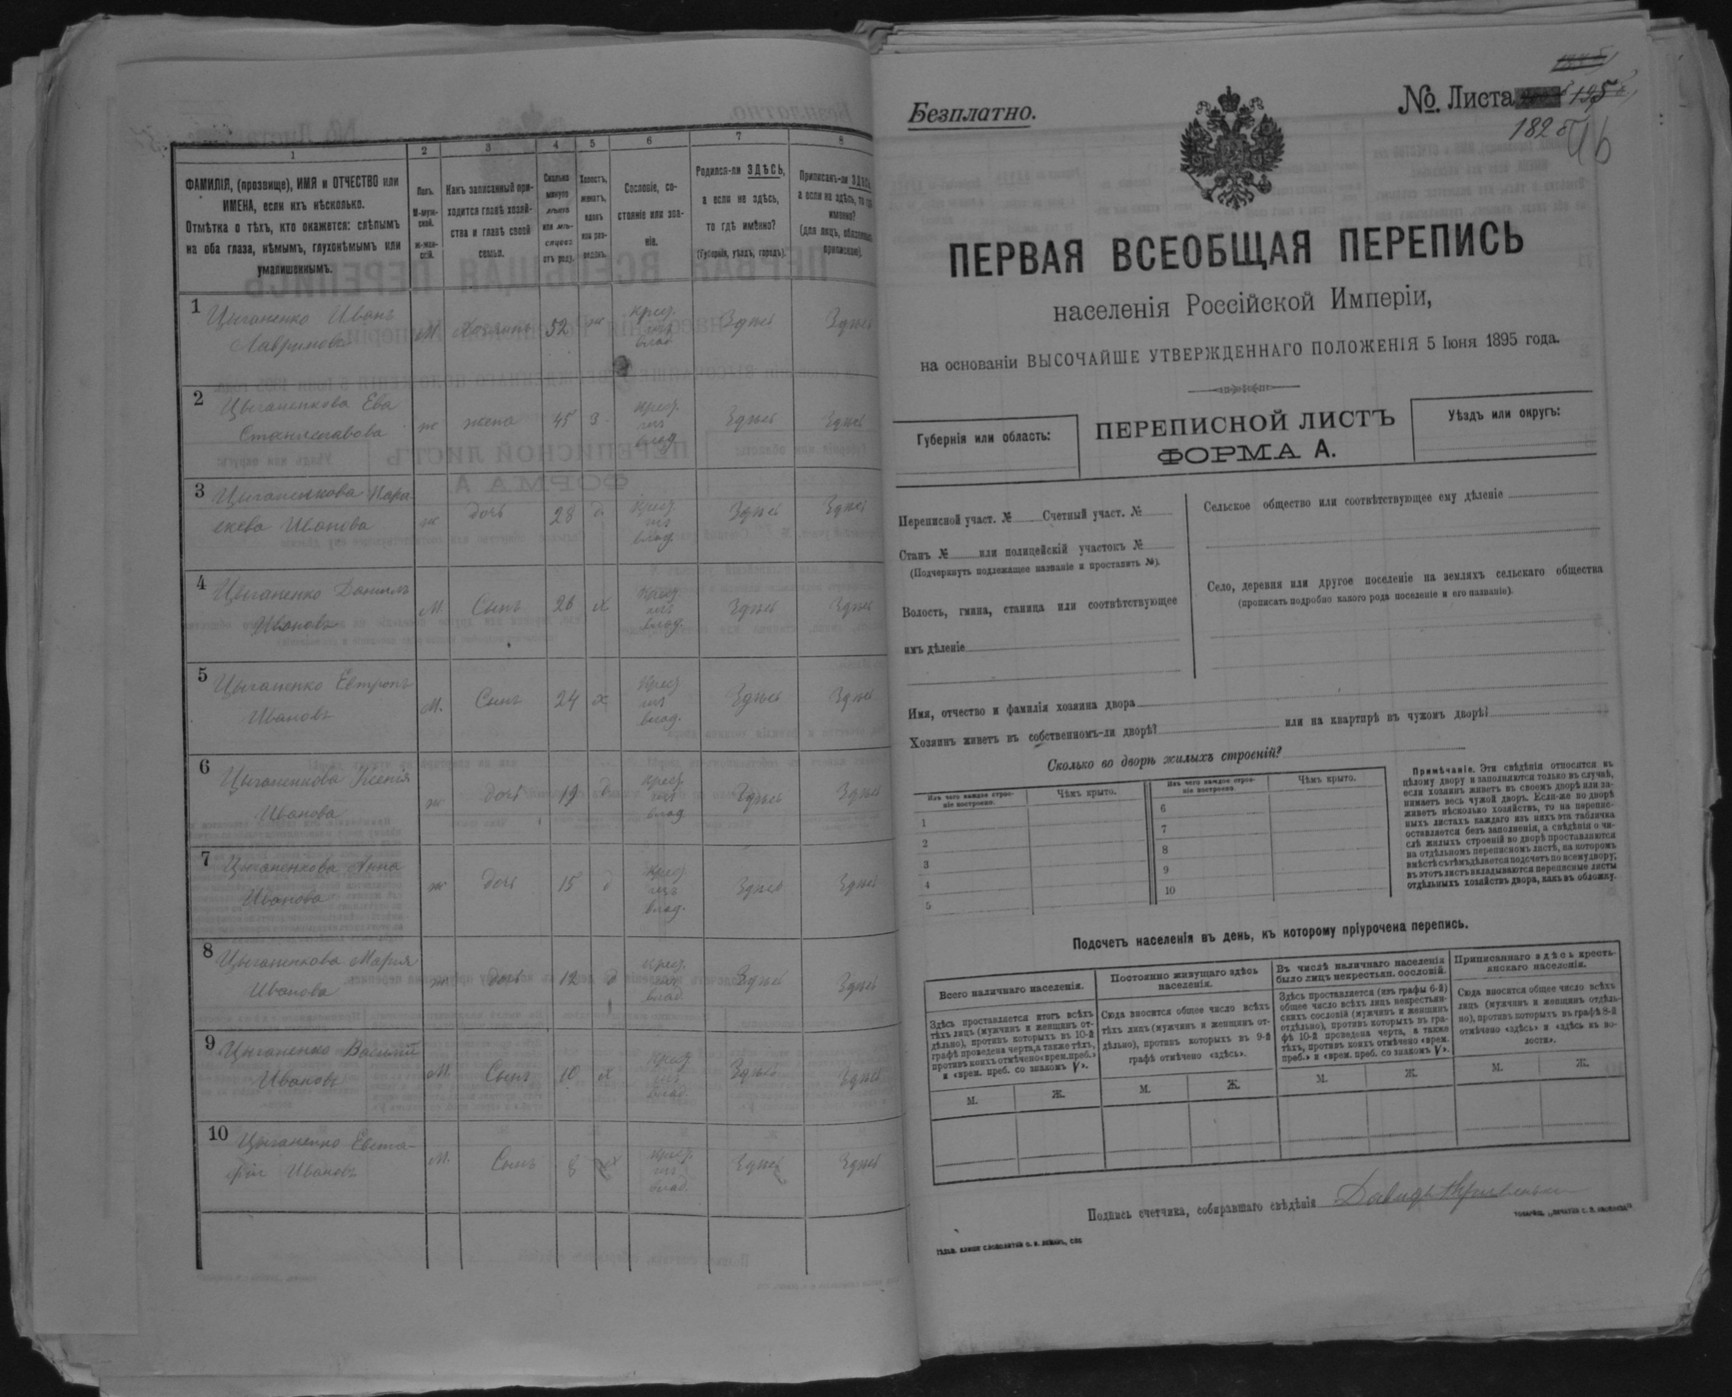 1
2
3
4
5
6
7
8
ФАМИЛІЯ, (прозвище), ИМЯ и ОТЧЕСТВО или
ИМЕНА, если ихъ нѣсколько.
Отмѣтка о тѣхъ, кто окажется: слѣпымъ
на оба глаза, нѣмымъ, глухонѣмымъ или
умалишеннымъ.
Полъ.
М-муж-
ской.
ж-жен-
скій.
Какъ записанный при-
ходится главѣ хозяй-
ства и главѣ своей
семьи.
Сколько
минуло
лѣтъ
или мѣ-
сяцевъ
отъ роду.
Холостъ,
женатъ,
вдовъ
или раз-
веденъ.
Сословіе, со-
стояніе или зва-
ніе.
Родился-ли ЗДѢСЬ,
а если не здѣсь,
то гдѣ именно?
(Губернія, уѣздъ, городъ).
Приписанъ-ли ЗДѢСЬ,
а если не здѣсь, то гдѣ
именно?
(для лицъ, обязанныхъ
припискою).
1 Цыганенко Иванъ
Лавриновъ М Хозяинъ 52 ж Крест. изъ влад. Здѣсь Здѣсь
2 Цыганенкова Ева
Станиславова ж жена 45 з Крест. изъ влад. Здѣсь Здѣсь
3 Цыганенкова Пара
скева Иванова ж дочь 28 д Крест. изъ влад. Здѣсь Здѣсь
4 Цыганенко Данилъ
Ивановъ М. Сынъ 26 х Крест. изъ влад. Здѣсь Здѣсь
5 Цыганенко Евтропъ
Ивановъ М. Сынъ 24 х Крест. изъ влад. Здѣсь Здѣсь
6 Цыганенкова Ксенія
Иванова ж дочь 19 д Крест. изъ влад. Здѣсь Здѣсь
7 Цыганенкова Анна
Иванова ж дочь 15 д Крест. изъ влад. Здѣсь Здѣсь
8 Цыганенкова Марія
Иванова ж дочь 12 д Крест. изъ влад. Здѣсь Здѣсь
9 Цыганенко Василій
Ивановъ М. Сынъ 10 х Крест. изъ влад. Здѣсь Здѣсь
10 Цыганенко Евста-
фій Ивановъ М. Сынъ 8 х Крест. изъ влад. Здѣсь Здѣсь
Безплатно.
№ Листа 195
182
ПЕРВАЯ ВСЕОБЩАЯ ПЕРЕПИСЬ
населенія Россійской Имперіи,
на основаніи ВЫСОЧАЙШЕ УТВЕРЖДЕННАГО ПОЛОЖЕНІЯ 5 Іюня 1895 года.
Губернія или область:
ПЕРЕПИСНОЙ ЛИСТЪ
ФОРМА А.
Уѣздъ или округъ:
Переписной участ. № Счетный участ. №
Станъ № или полицейскій участокъ №
(Подчеркнуть подлежащее названіе и проставить №).
Волость, гмина, станица или соотвѣтствующее
имъ дѣленіе
Сельское общество или соотвѣтствующее ему дѣленіе
Село, деревня или другое поселеніе на земляхъ сельскаго общества
(прописать подробно какого рода поселеніе и его названіе).
Имя, отчество и фамилія хозяина двора
Хозяинъ живетъ въ собственномъ-ли дворѣ? или на квартирѣ въ чужомъ дворѣ?
Сколько во дворѣ жилыхъ строеній?
Изъ чего каждое строе-
ніе построено.
Чѣмъ крыто.
Изъ чего каждое строе-
ніе построено.
Чѣмъ крыто.
1
2
3
4
5
6
7
8
9
10
Примѣчаніе. Эти свѣдѣнія относятся къ
цѣлому двору и заполняются только въ случаѣ,
если хозяинъ живетъ въ своемъ дворѣ или за-
нимаетъ весь чужой дворъ. Если-же во дворѣ
живетъ нѣсколько хозяйствъ, то на перепис-
ныхъ листахъ каждаго изъ нихъ эта табличка
оставляется безъ заполненія, а свѣдѣнія о чи-
слѣ жилыхъ строеній во дворѣ проставляются
на отдѣльномъ переписномъ листѣ, на которомъ
вмѣстѣ съ тѣмъ дѣлается подсчетъ по всему двору;
въ этотъ листъ вкладываются переписные листы
отдѣльныхъ хозяйствъ двора, какъ въ обложку.
Подсчетъ населенія въ день, къ которому пріурочена перепись.
Всего наличнаго населенія.
Здѣсь проставляется итогъ всѣхъ
тѣхъ лицъ (мужчинъ и женщинъ от-
дѣльно), противъ которыхъ въ 10-й
графѣ проведена черта, а также тѣхъ,
противъ коихъ отмѣчено «врем. преб.»
и «врем. преб. со знакомъ V».
М.
Ж.
Постоянно живущаго здѣсь
населенія.
Сюда вносится общее число всѣхъ
тѣхъ лицъ (мужчинъ и женщинъ от-
дѣльно), противъ которыхъ въ 9-й
графѣ отмѣчено «здѣсь».
М.
Ж.
Въ числѣ наличнаго населенія
было лицъ некрестьян. сословій.
Здѣсь проставляется (изъ графы 6-й)
общее число всѣхъ лицъ некрестьян-
скихъ сословій (мужчинъ и женщинъ
отдѣльно), противъ которыхъ въ гра-
фѣ 10-й проведена черта, а также
тѣхъ, противъ коихъ отмѣчено «врем.
преб.» и «врем. преб. со знакомъ V».
М.
Ж.
Приписаннаго здѣсь кресть-
янскаго населенія.
Сюда вносится общее число всѣхъ
лицъ (мужчинъ и женщинъ отдѣль-
но), противъ которыхъ въ графѣ 8-й
отмѣчено «здѣсь» и «здѣсь въ во-
лости».
М.
Ж.
Подпись счетчика, собиравшаго свѣдѣнія Давидъ